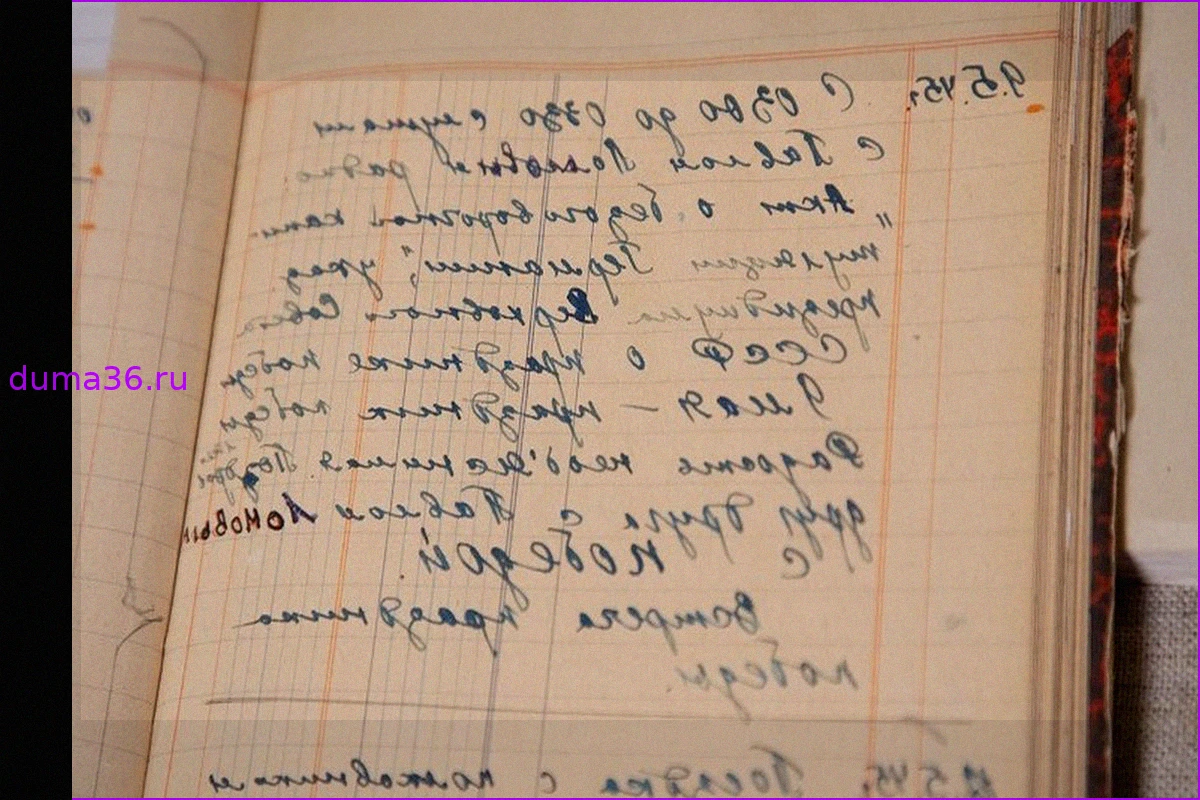 9.5.45г. С 0300 до 0330 слушали
с Павлом Ломовым радио.
"Акт о безоговорочной капи-
туляции Германии", указ
президиума Верховного Совета
СССР о празднике победы
9 мая – праздник победы
Радость необ'яснимая Поздрав
друг друга с Павлом Ломовым
с победой
Встреча праздника
победы.
.5.45г. Поездка с полковником
duma36.ru